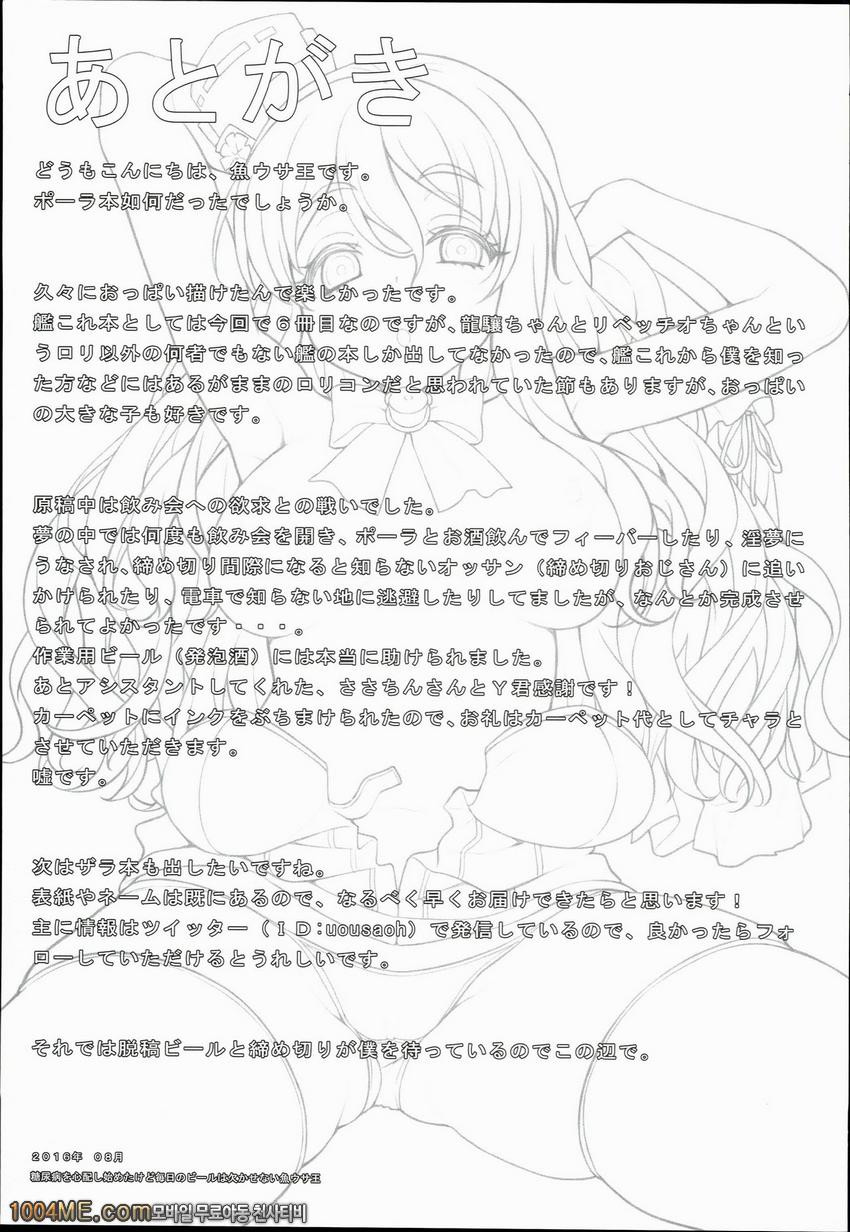 あとがき
どうもこんにちは、魚ウサ王です。
ポーラ本如何だったでしょうか。
久々におっぱい描けたんで楽しかったです。
艦これ本としては今回で６冊目なのですが、龍驤ちゃんとリベッチオちゃんとい
うロリ以外の何者でもない艦の本しか出してなかったので、艦これから僕を知っ
た方などにはあるがままのロリコンだと思われていた節もありますが、おっぱい
の大きな子も好きです。
原稿中は飲み会への欲求との戦いでした。
夢の中では何度も飲み会を開き、ポーラとお酒飲んでフィーバーしたり、淫夢に
うなされ、締め切り間際になると知らないオッサン（締め切りおじさん）に追い
かけられたり、電車で知らない地に逃避したりしてましたが、なんとか完成させ
られてよかったです・・・。
作業用ビール（発泡酒）には本当に助けられました。
あとアシスタントしてくれた、ささちんさんとＹ君感謝です！
カーペットにインクをぶちまけられたので、お礼はカーペット代としてチャラと
させていただきます。
嘘です。
次はザラ本も出したいですね。
表紙やネームは既にあるので、なるべく早くお届けできたらと思います！
主に情報はツイッター（ＩＤ：uousaoh）で発信しているので、良かったらフォ
ローしていただけるとうれしいです。
それでは脱稿ビールと締め切りが僕を待っているのでこの辺で。
２０１６年　０８月
糖尿病を心配し始めたけど毎日のビールは欠かせない魚ウサ王
1004ME.com모바일 무료야동 천사티비